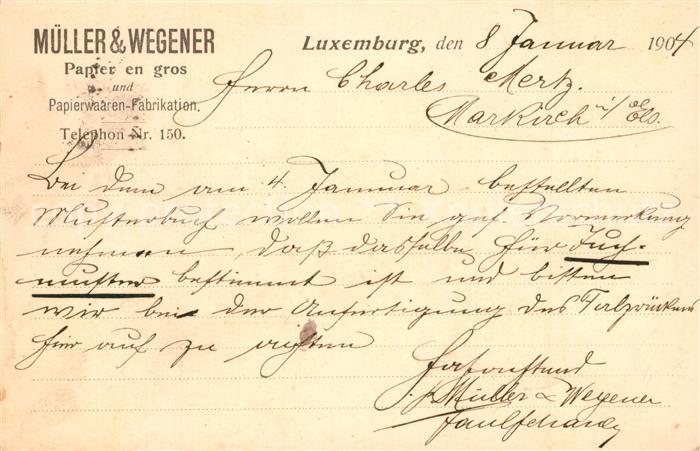 MÜLLER & WEGENER
Papier en gros
und
Papierwaaren-Fabrikation.
Telephon Nr. 150.
Luxemburg, den 8 Januar 1904
Herrn Charles Mertz.
Markirch i/ Els.
Bei dem am 4. Januar bestellten
Musterbuch wollen Sie gef. Vormerkung
nehmen, daß dasselbe für Tuch-
muster bestimmt ist und bitten
wir bei der Anfertigung des
hier auf zu achten
Hochachtend
Müller & Wegener